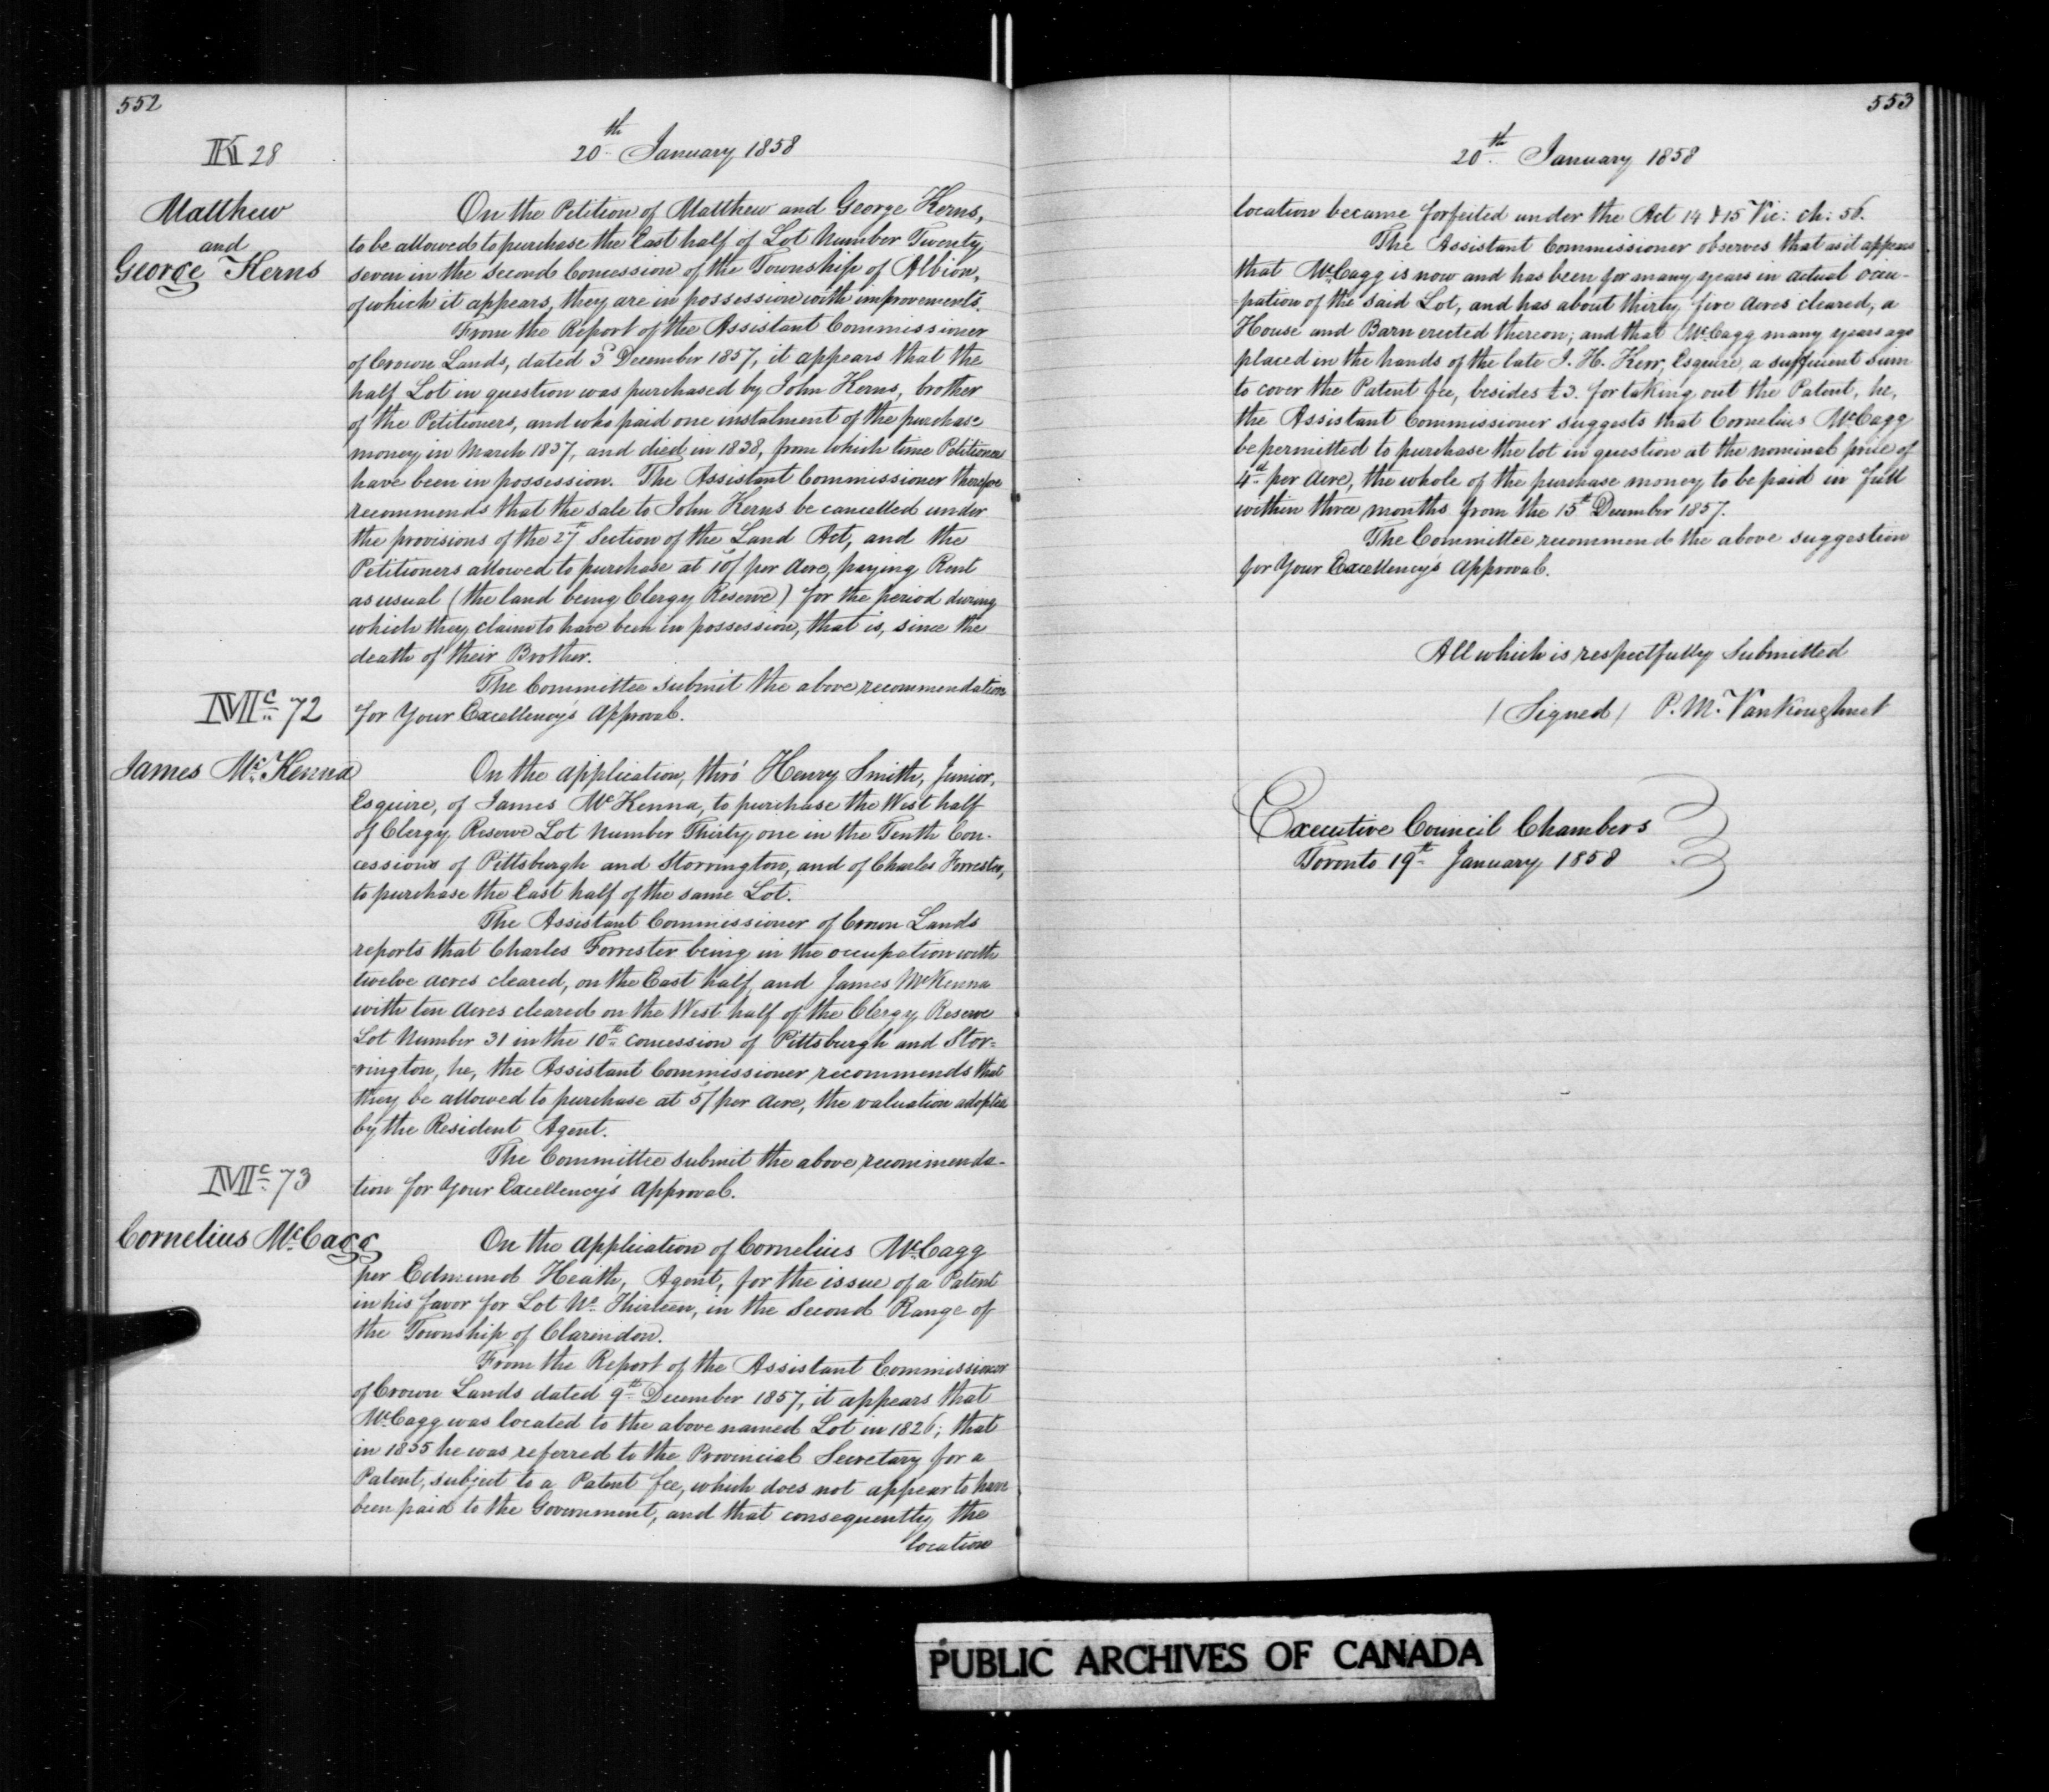 552
K 28
20th January 1858
Matthew
and
George Kerns
On the Petition of Matthew and George Kerns,
to be allowed to purchase the East half of Lot Number Twenty
seven in the Second Concession of the Township of Albion,
of which it appears, they are in possession with improvements.
From the Report of the Assistant Commissioner
of Crown Lands, dated 3d December 1857, it appears that the
half Lot in question was purchased by John Kerns, brother
of the Petitioners, and who paid one instalment of the purchase
money in March 1837, and died in 1838, from which time Petitioners
have been in possession. The Assistant Commissioner therefore
recommends that the sale to John Kerns be cancelled under
the provisions of the 27th Section of the Land Act, and the
Petitioners allowed to purchase at 10/ per Acre, paying Rent
as usual (the land being Clergy Reserve) for the period during
which they claim to have been in possession, that is, since the
death of their Brother.
The Committee submit the above recommendation
for Your Excellency's Approval.
Mc 72
James McKenna
On the Application, thro' Henry Smith, Junior,
Esquire, of James McKenna, to purchase the West half
of Clergy Reserve Lot Number Thirty one in the Tenth Con-
cession of Pittsburgh and Storrington, and of Charles Forrester,
to purchase the East half of the same Lot.
The Assistant Commissioner of Crown Lands
reports that Charles Forrester being in the occupation with
twelve acres cleared, on the East half, and James McKenna
with ten Acres cleared on the West half of the Clergy Reserve
Lot Number 31 in the 10th concession of Pittsburgh and Stor=
rington, he, the Assistant Commissioner recommends that
they be allowed to purchase at 5/ per Acre, the valuation adopted
by the Resident Agent.
The Committee submit the above recommenda-
tion for Your Excellency's Approval.
Mc 73
Cornelius McCagg
On the Application of Cornelius McCagg
per Edmund Heath, Agent, for the issue of a Patent
in his favor for Lot No. Thirteen, in the Second Range of
the Township of Clarendon.
From the Report of the Assistant Commissioner
of Crown Lands dated 9th December 1857, it appears that
McCagg was located to the above named Lot in 1826; that
in 1835 he was referred to the Provincial Secretary for a
Patent, subject to a Patent fee, which does not appear to have
been paid to the Government, and that consequently the
location
553
20th January 1858
location became forfeited under the Act 14 & 15 Vic: ch: 56.
The Assistant Commissioner observes that as it appears
that McCagg is now and has been for many years in actual occu-
=pation of the said Lot, and has about thirty five Acres cleared, a
House and Barn erected thereon; and that McCagg many years ago
placed in the hands of the late J. H. Kerr, Esquire, a sufficient sum
to cover the Patent fee, besides £3. for taking out the Patent, he,
the Assistant Commissioner suggests that Cornelius McCagg
be permitted to purchase the lot in question at the nominal price of
4d per Acre, the whole of the purchase money to be paid in full
within three months from the 15th December 1857.
The Committee recommend the above suggestion
for Your Excellency's Approval.
All which is respectfully Submitted
(Signed) P. M. VanKoughnet
Executive Council Chambers
Toronto 19th January 1858
PUBLIC ARCHIVES OF CANADA